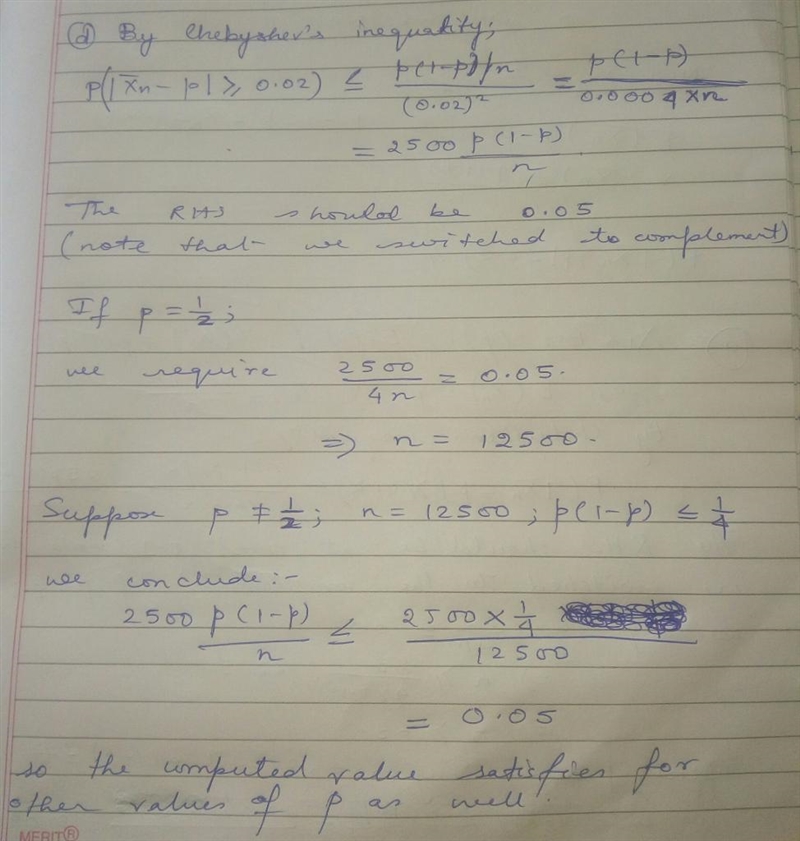 (d) By Chebyshev's inequality;
p(|X̄n - p| ⩾ 0.02) ≤ p(1-p)/n / (0.02)² = p(1-p) / 0.0004 × n
= 2500 p(1-p) / n
The RHS should be 0.05
(note that we switched to complement)
If p = 1/2;
we require 2500 / 4n = 0.05.
⇒ n = 12500.
Suppose p ≠ 1/2; n = 12500; p(1-p) ≤ 1/4
we conclude:-
2500 p(1-p) / n ≤ 2500 × 1/4 / 12500
= 0.05
so the computed value satisfies for
other values of p as well.
MERIT®